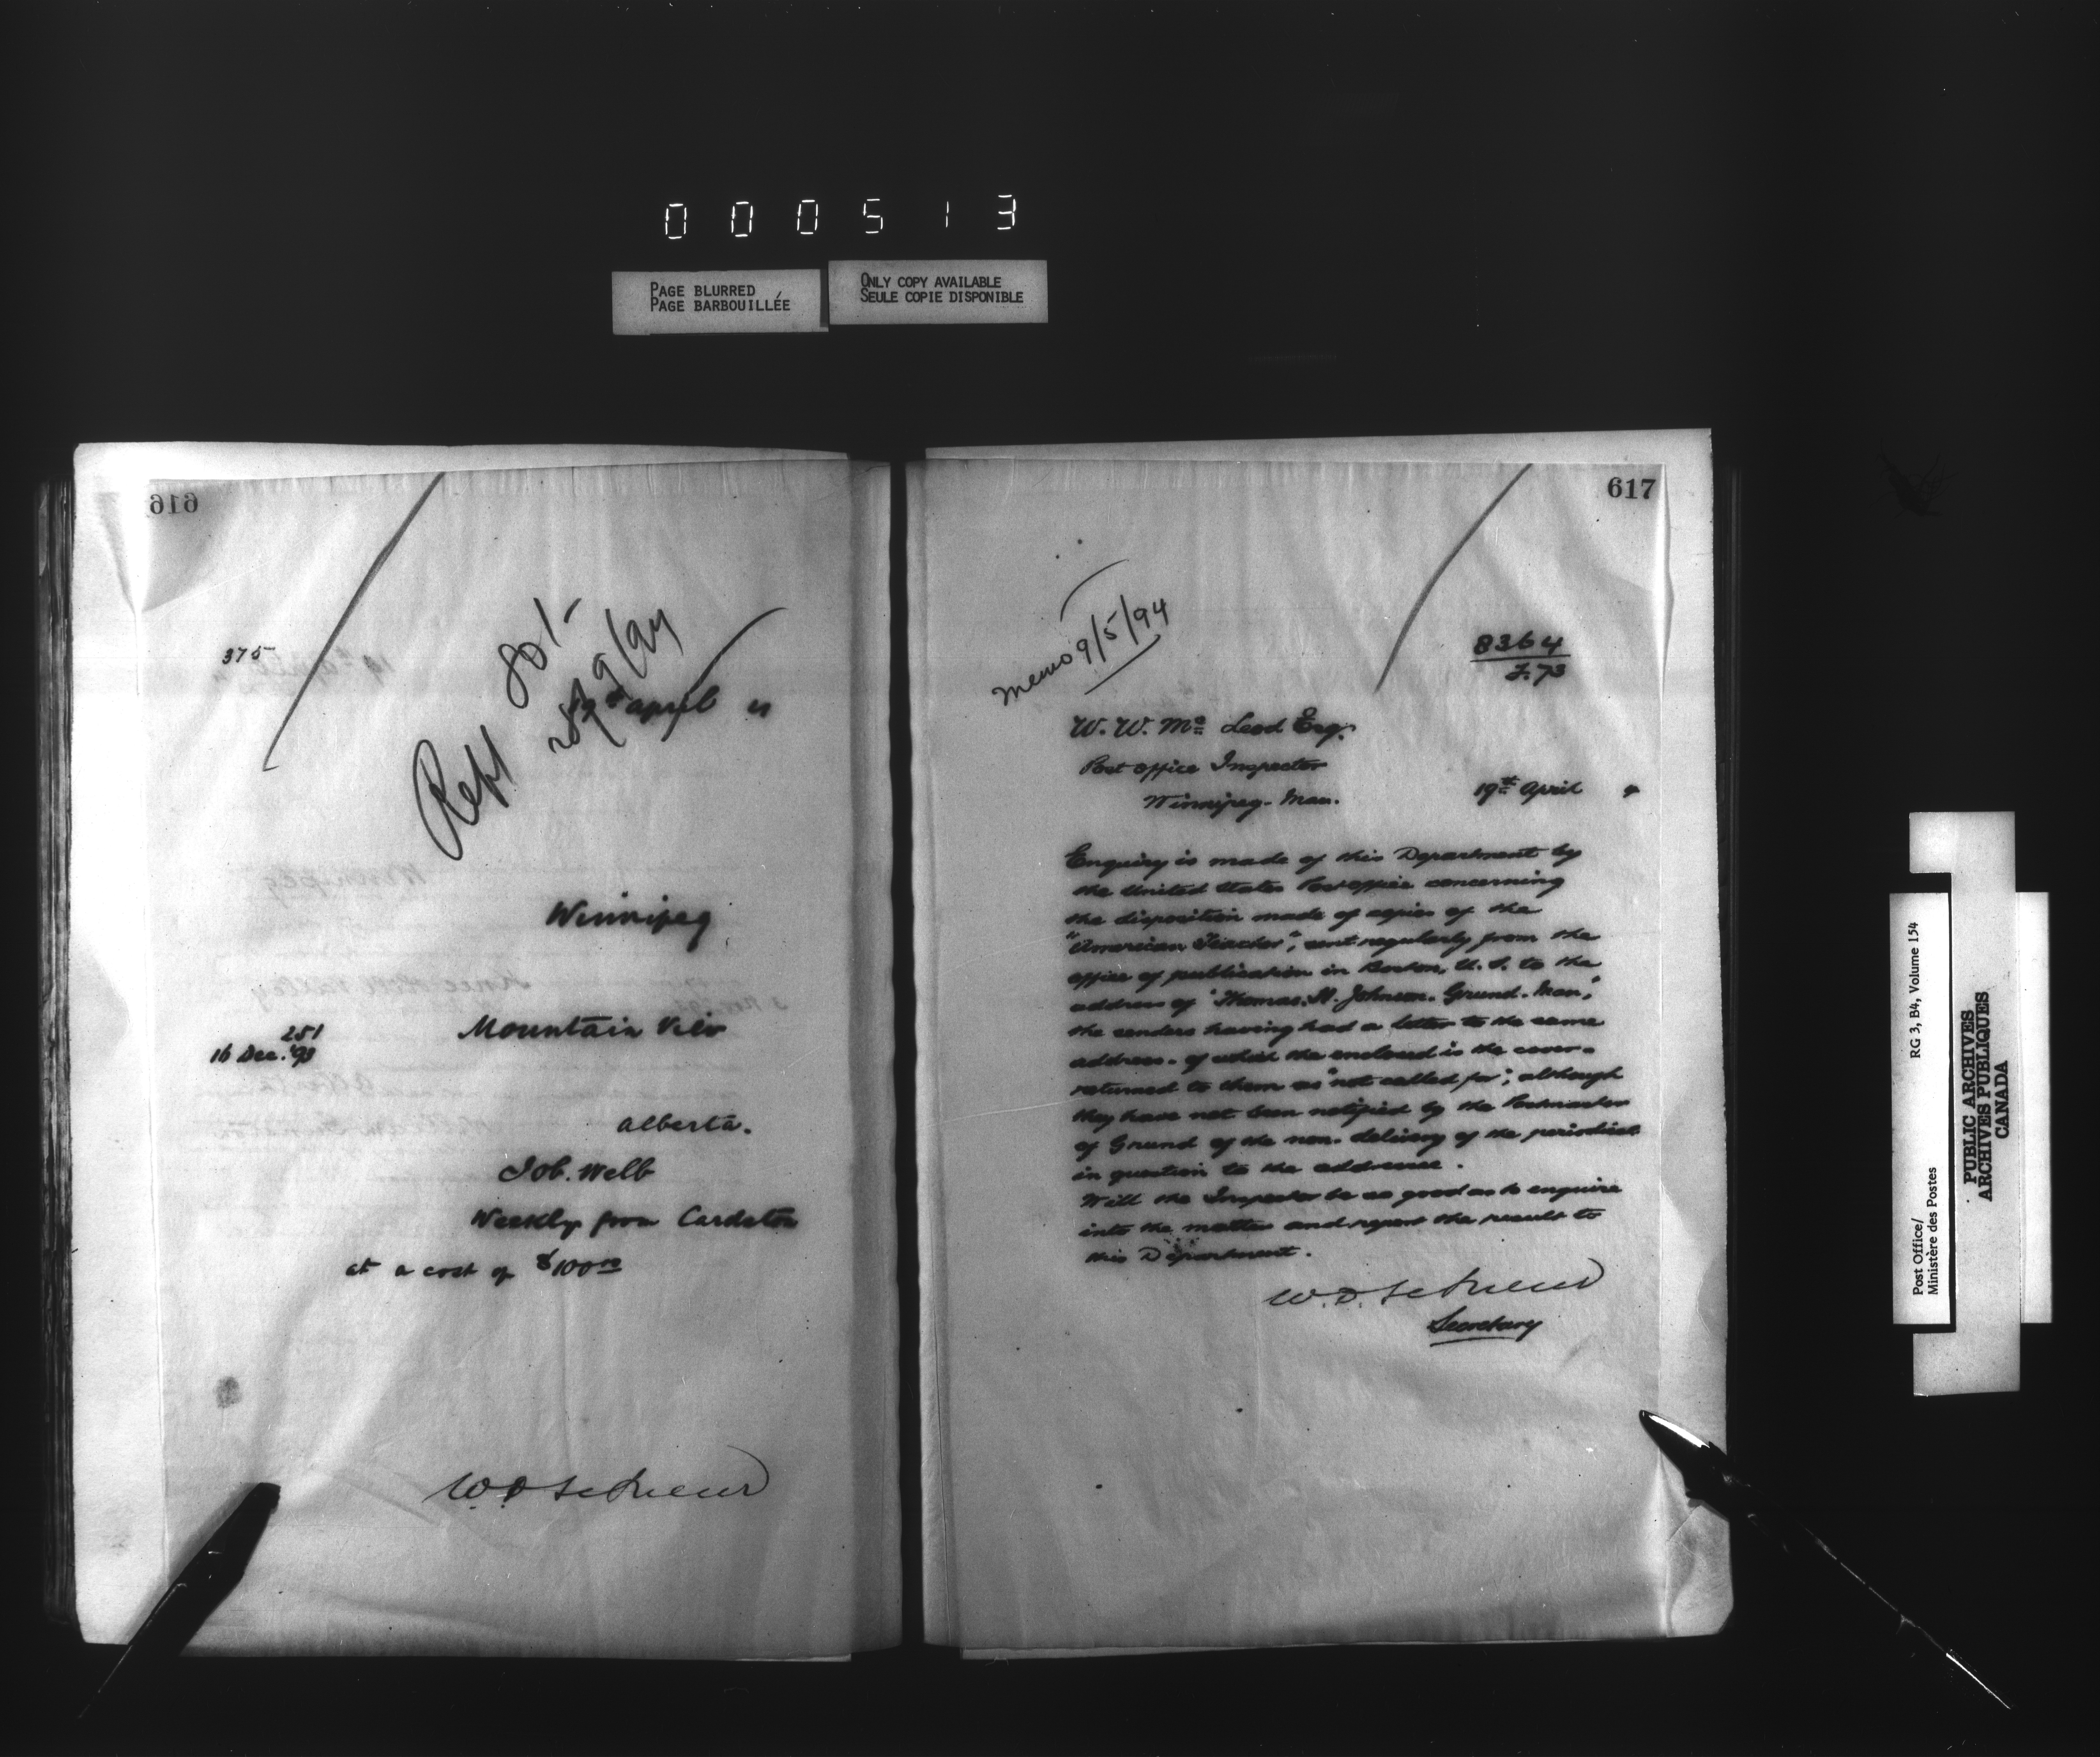 000513
PAGE BLURRED
PAGE BARBOUILLÉE
ONLY COPY AVAILABLE
SEULE COPIE DISPONIBLE
616
375
Rept
19th April
Winnipeg
251
16 Dec. '93
Mountain View
Alberta.
Job. Webb
Weekly from Cardston
at a cost of $100 00
617
Memo 9/5/94
8364
J. 73
W. W. Mc Leod Esq.
Post Office Inspector
Winnipeg. Man.
19th April
Enquiry is made of this Department by
the United States Post office concerning
the disposition made of copies of the
"American Teacher", sent regularly from the
office of publication in Boston, U.S. to the
address of "Thomas. H. Johnson. Grund. Man,"
the senders having had a letter to the same
address - of which the enclosed is the cover -
returned to them as "not called for", although
they have not been notified by the Postmaster
of Grund of the non-delivery of the periodical
in question to the addressee.
Will the Inspector be so good as to enquire
into the matter and report the result to
this Department.
Secretary
Post Office/
Ministère des Postes
RG 3, B4, Volume 154
PUBLIC ARCHIVES
ARCHIVES PUBLIQUES
CANADA